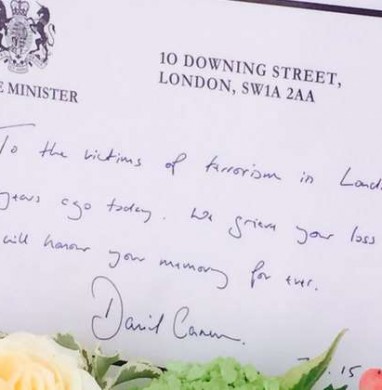 E MINISTER
10 DOWNING STREET,
LONDON, SW1A 2AA
To the victims of terrorism in Lond
years ago today. We grieve your loss
will honour your memory for ever.
David Cameron.
.15